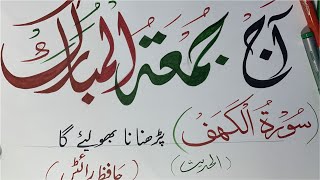 آج جمعۃ المبارک
(سورۃ الکہف) پڑھنا نا بھولیئے گا
(الحدیث) (حافظ رائٹس)